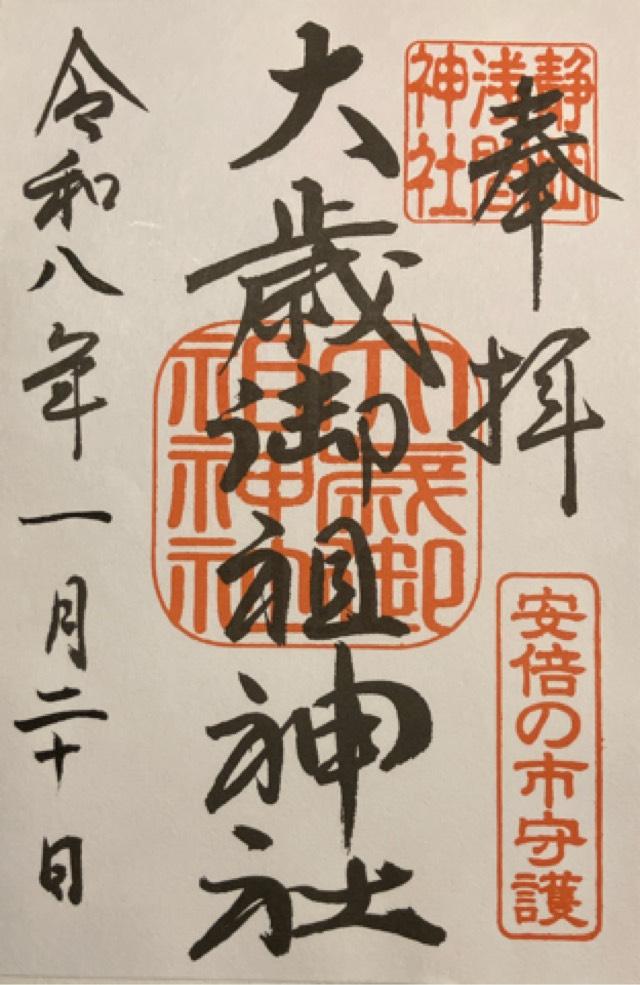 奉拝
静岡
浅間
神社
安倍の市守護
大歳御祖神社
大歳御
祖神社
令和八年一月二十日